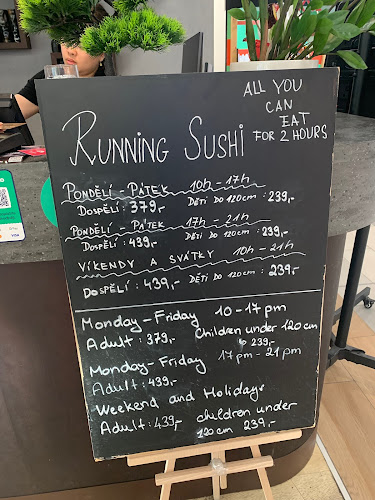 ALL YOU
CAN
EAT
FOR 2 HOURS
RUNNING SUSHI
PONDĚLÍ - PÁTEK 10h - 17h
DOSPĚLÍ : 379,- DĚTI DO 120cm : 239,-
PONDĚLÍ - PÁTEK 17h - 21h
DOSPĚLÍ : 439,- DĚTI DO 120cm : 239,-
VÍKENDY A SVÁTKY 10h - 21h
DOSPĚLÍ : 439,- DĚTI DO 120cm : 239,-
Monday - Friday 10 - 17 pm
Adult : 379,- Children under 120 cm
↳ 239,-
Monday - Friday 17 pm - 21 pm
Adult : 439,-
Weekend and Holidays
Adult : 439,- children under
120 cm 239,-